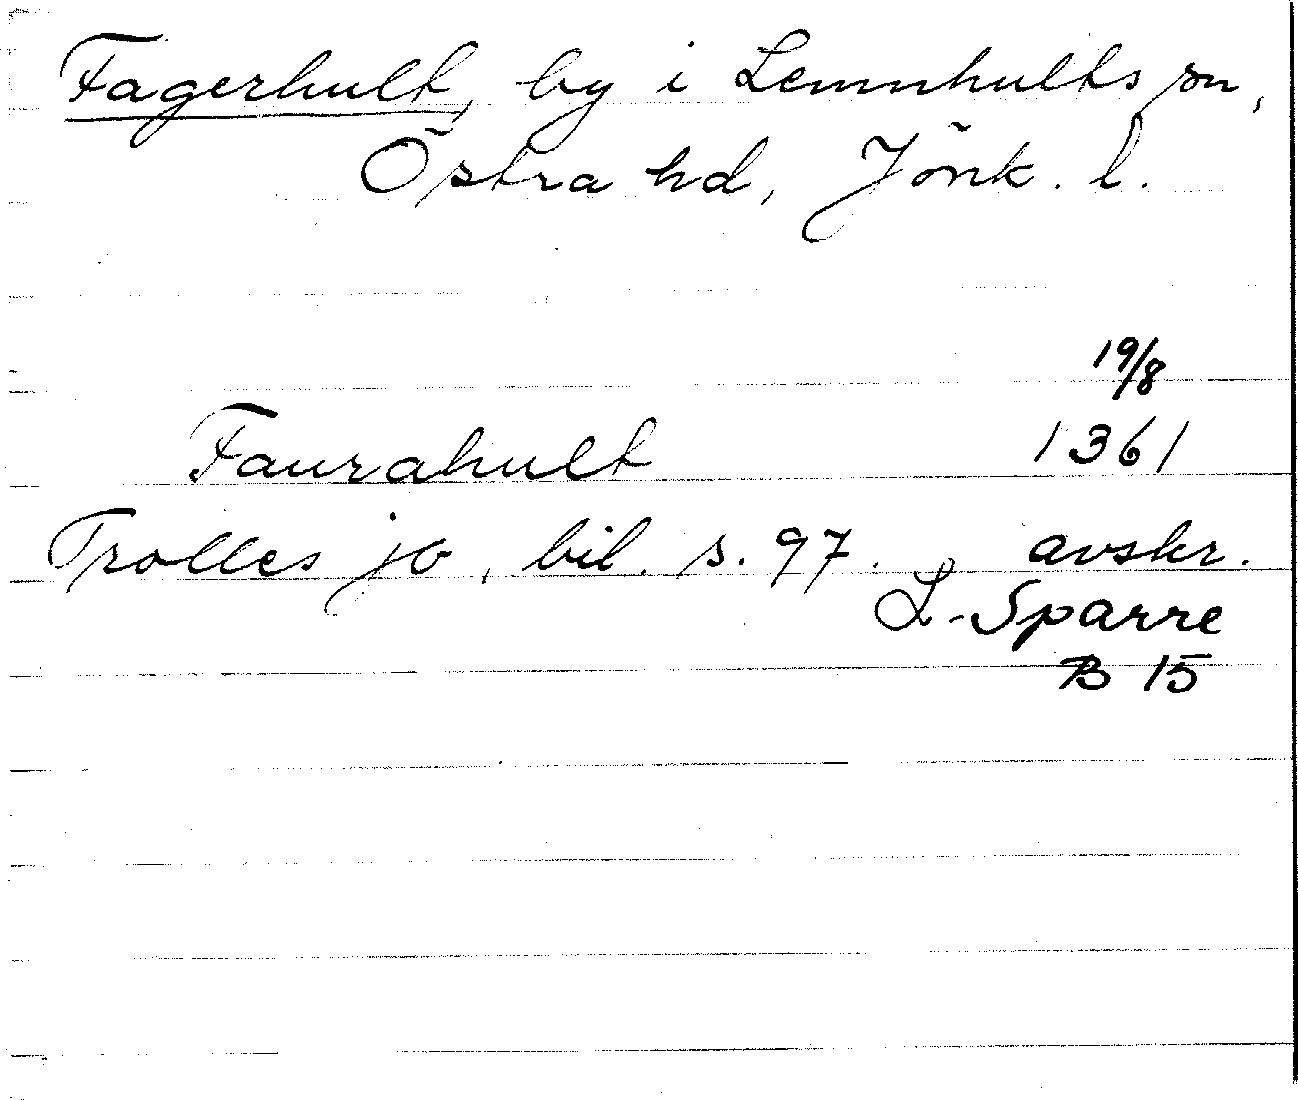 Fagerhult, by i Lemnhults sn,
Östra hd, Jönk. l.
19/8
Faurahult 1361
Trolles jb, bil. s. 97. avskr.
L. Sparre
B 15